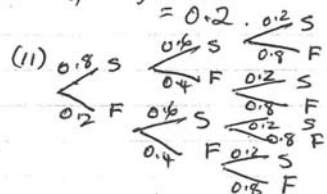 = 0.2
(11) 0.8 S 0.6 S 0.2 S
0.8 F
0.4 F 0.2 S
0.8 F
0.2 F 0.6 S 0.2 S
0.8 F
0.4 F 0.2 S
0.8 F